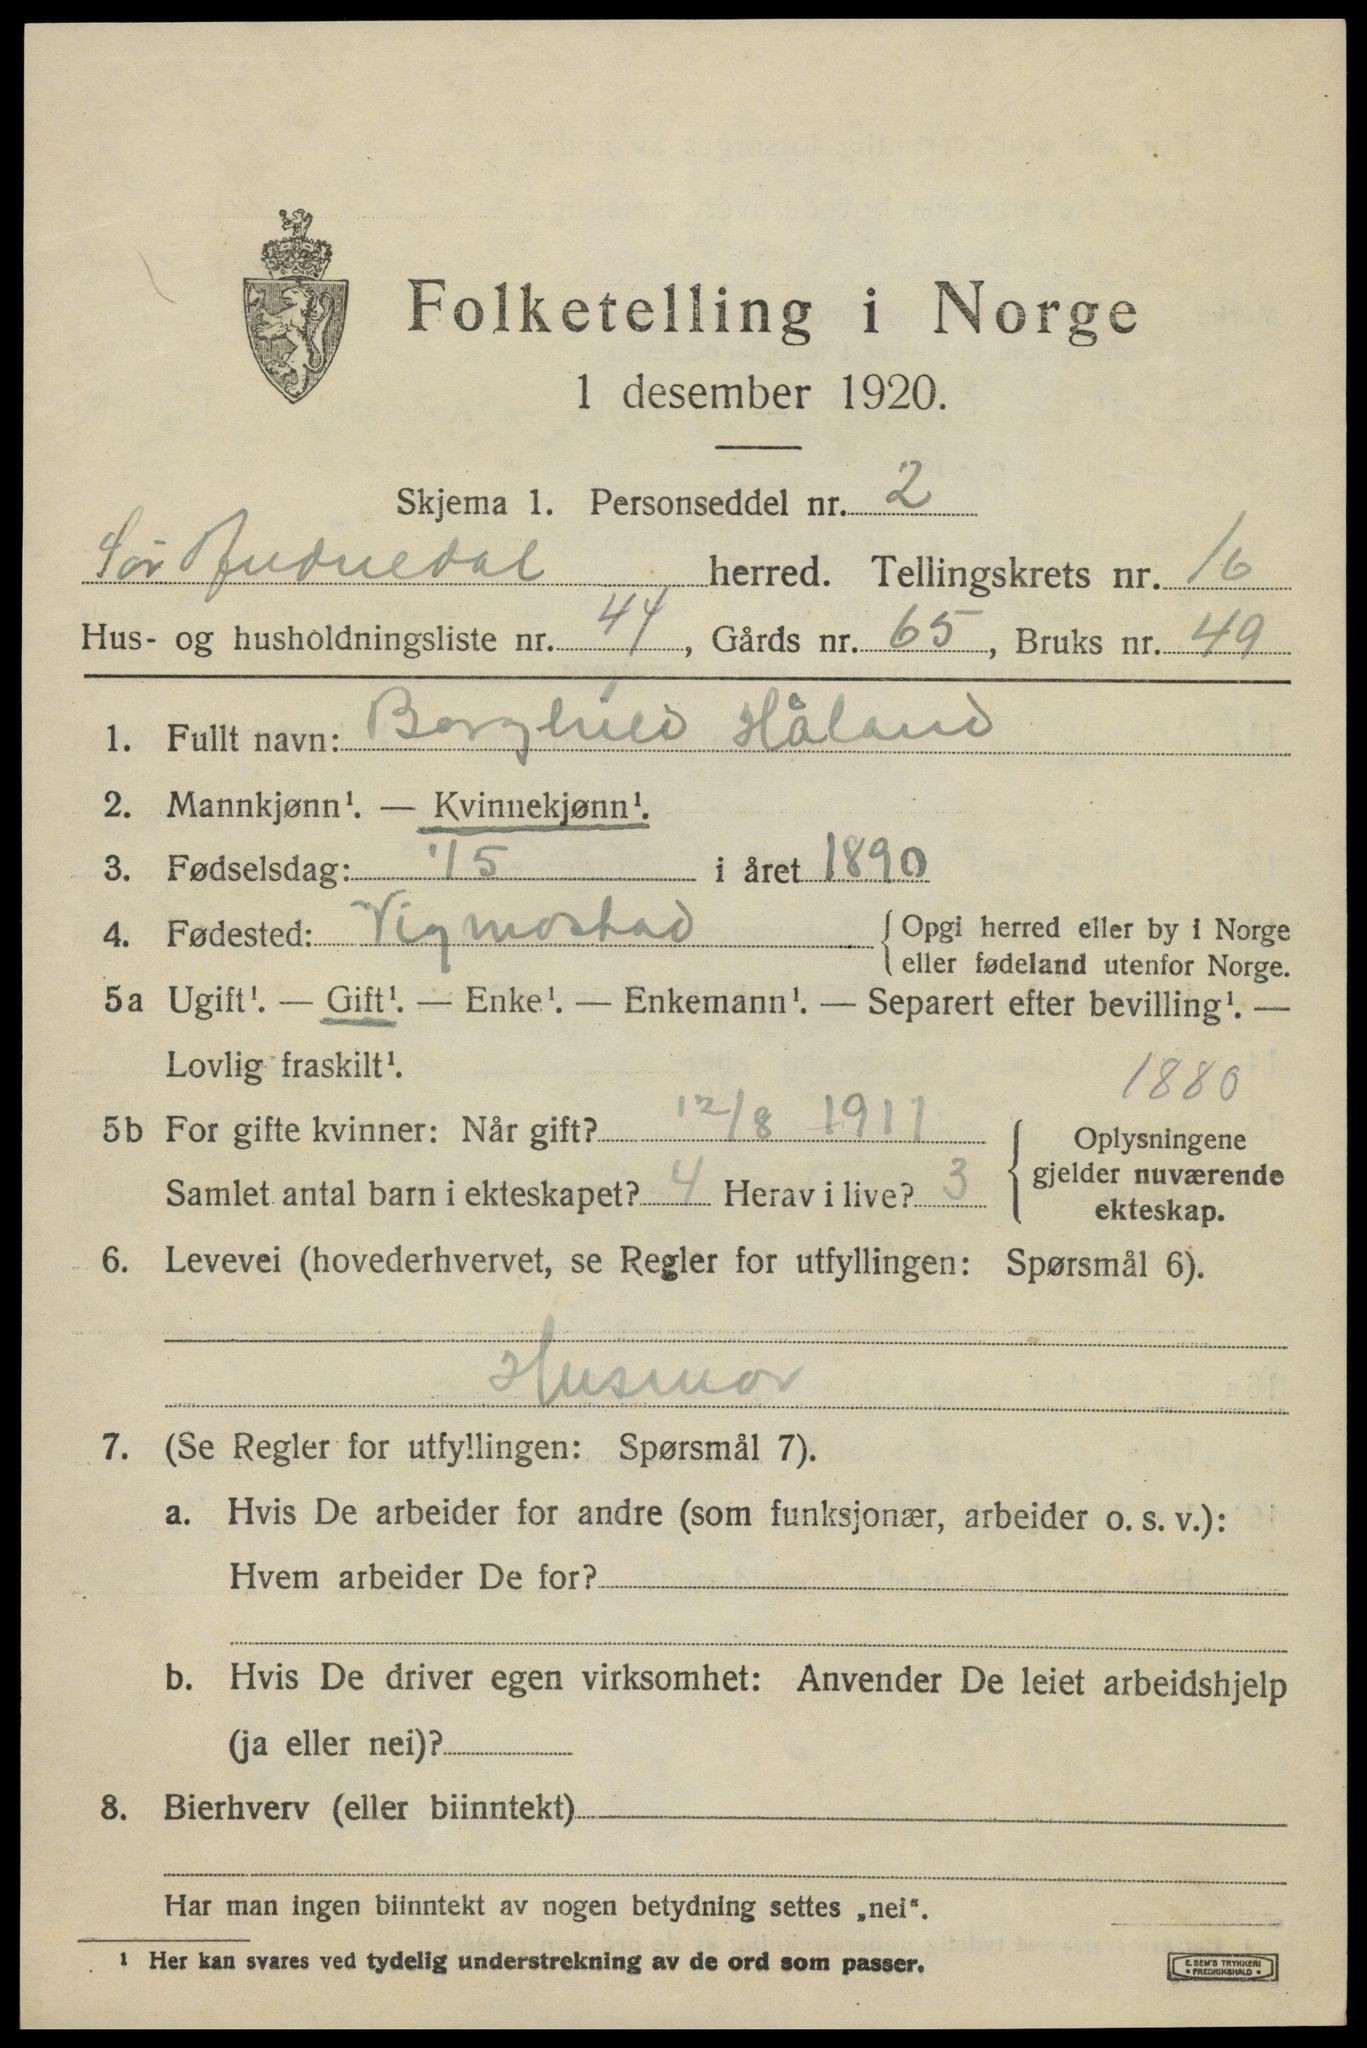 Folketelling i Norge
1 desember 1920.
Skjema 1. Personseddel nr. 2
Sør Audnedal herred. Tellingskrets nr. 16
Hus- og husholdningsliste nr. 44, Gårds nr. 65, Bruks nr. 49
1. Fullt navn: Borghild Håland
2. Mannkjønn¹. — Kvinnekjønn¹.
3. Fødselsdag: 1/5 i året 1890
4. Fødested: Vigmostad { Opgi herred eller by i Norge
eller fødeland utenfor Norge.
5a Ugift¹. — Gift¹. — Enke¹. — Enkemann¹. — Separert efter bevilling¹. —
Lovlig fraskilt¹.
1880
5b For gifte kvinner: Når gift? 12/8 1911
Samlet antal barn i ekteskapet? 4 Herav i live? 3
{ Oplysningene
gjelder nuværende
ekteskap.
6. Levevei (hovederhvervet, se Regler for utfyllingen: Spørsmål 6).
Husmor
7. (Se Regler for utfyllingen: Spørsmål 7).
a. Hvis De arbeider for andre (som funksjonær, arbeider o. s. v.):
Hvem arbeider De for?
b. Hvis De driver egen virksomhet: Anvender De leiet arbeidshjelp
(ja eller nei)?
8. Bierhverv (eller biinntekt)
Har man ingen biinntekt av nogen betydning settes „nei“.
¹ Her kan svares ved tydelig understrekning av de ord som passer.
E. SEM'S TRYKKERI
• FREDRIKSHALD •